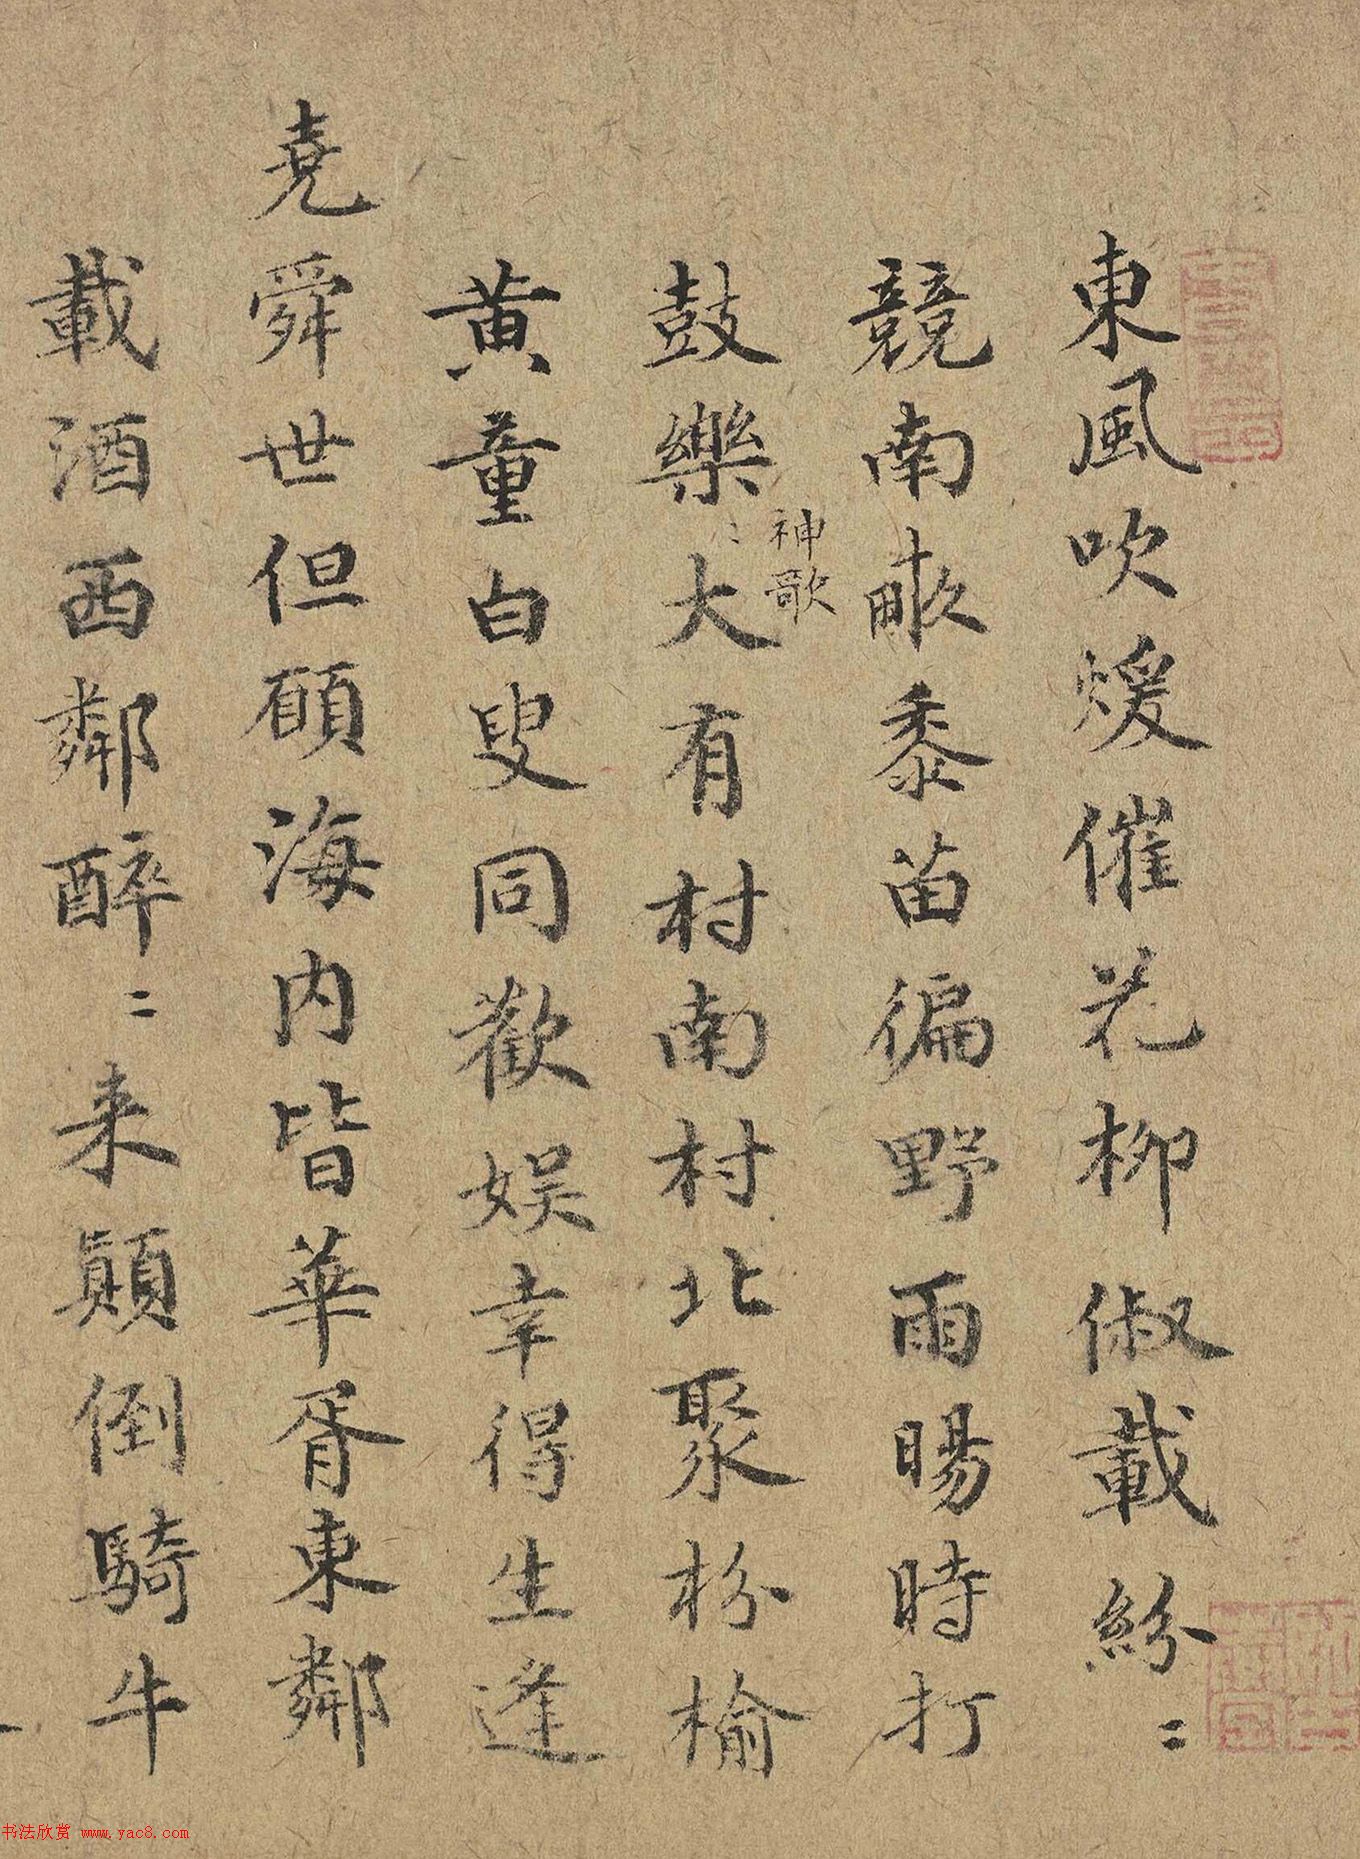 東風吹煖催花柳俶載紛〻
競南畞黍苗徧野雨暘時打
鼓樂〻大有村南村北聚枌榆
神歌
黄童白叟同歡娱幸得生逢
堯舜世但願海内皆華胥東鄰
載酒西鄰醉〻来顛倒騎牛
书法欣赏 www.yac8.com